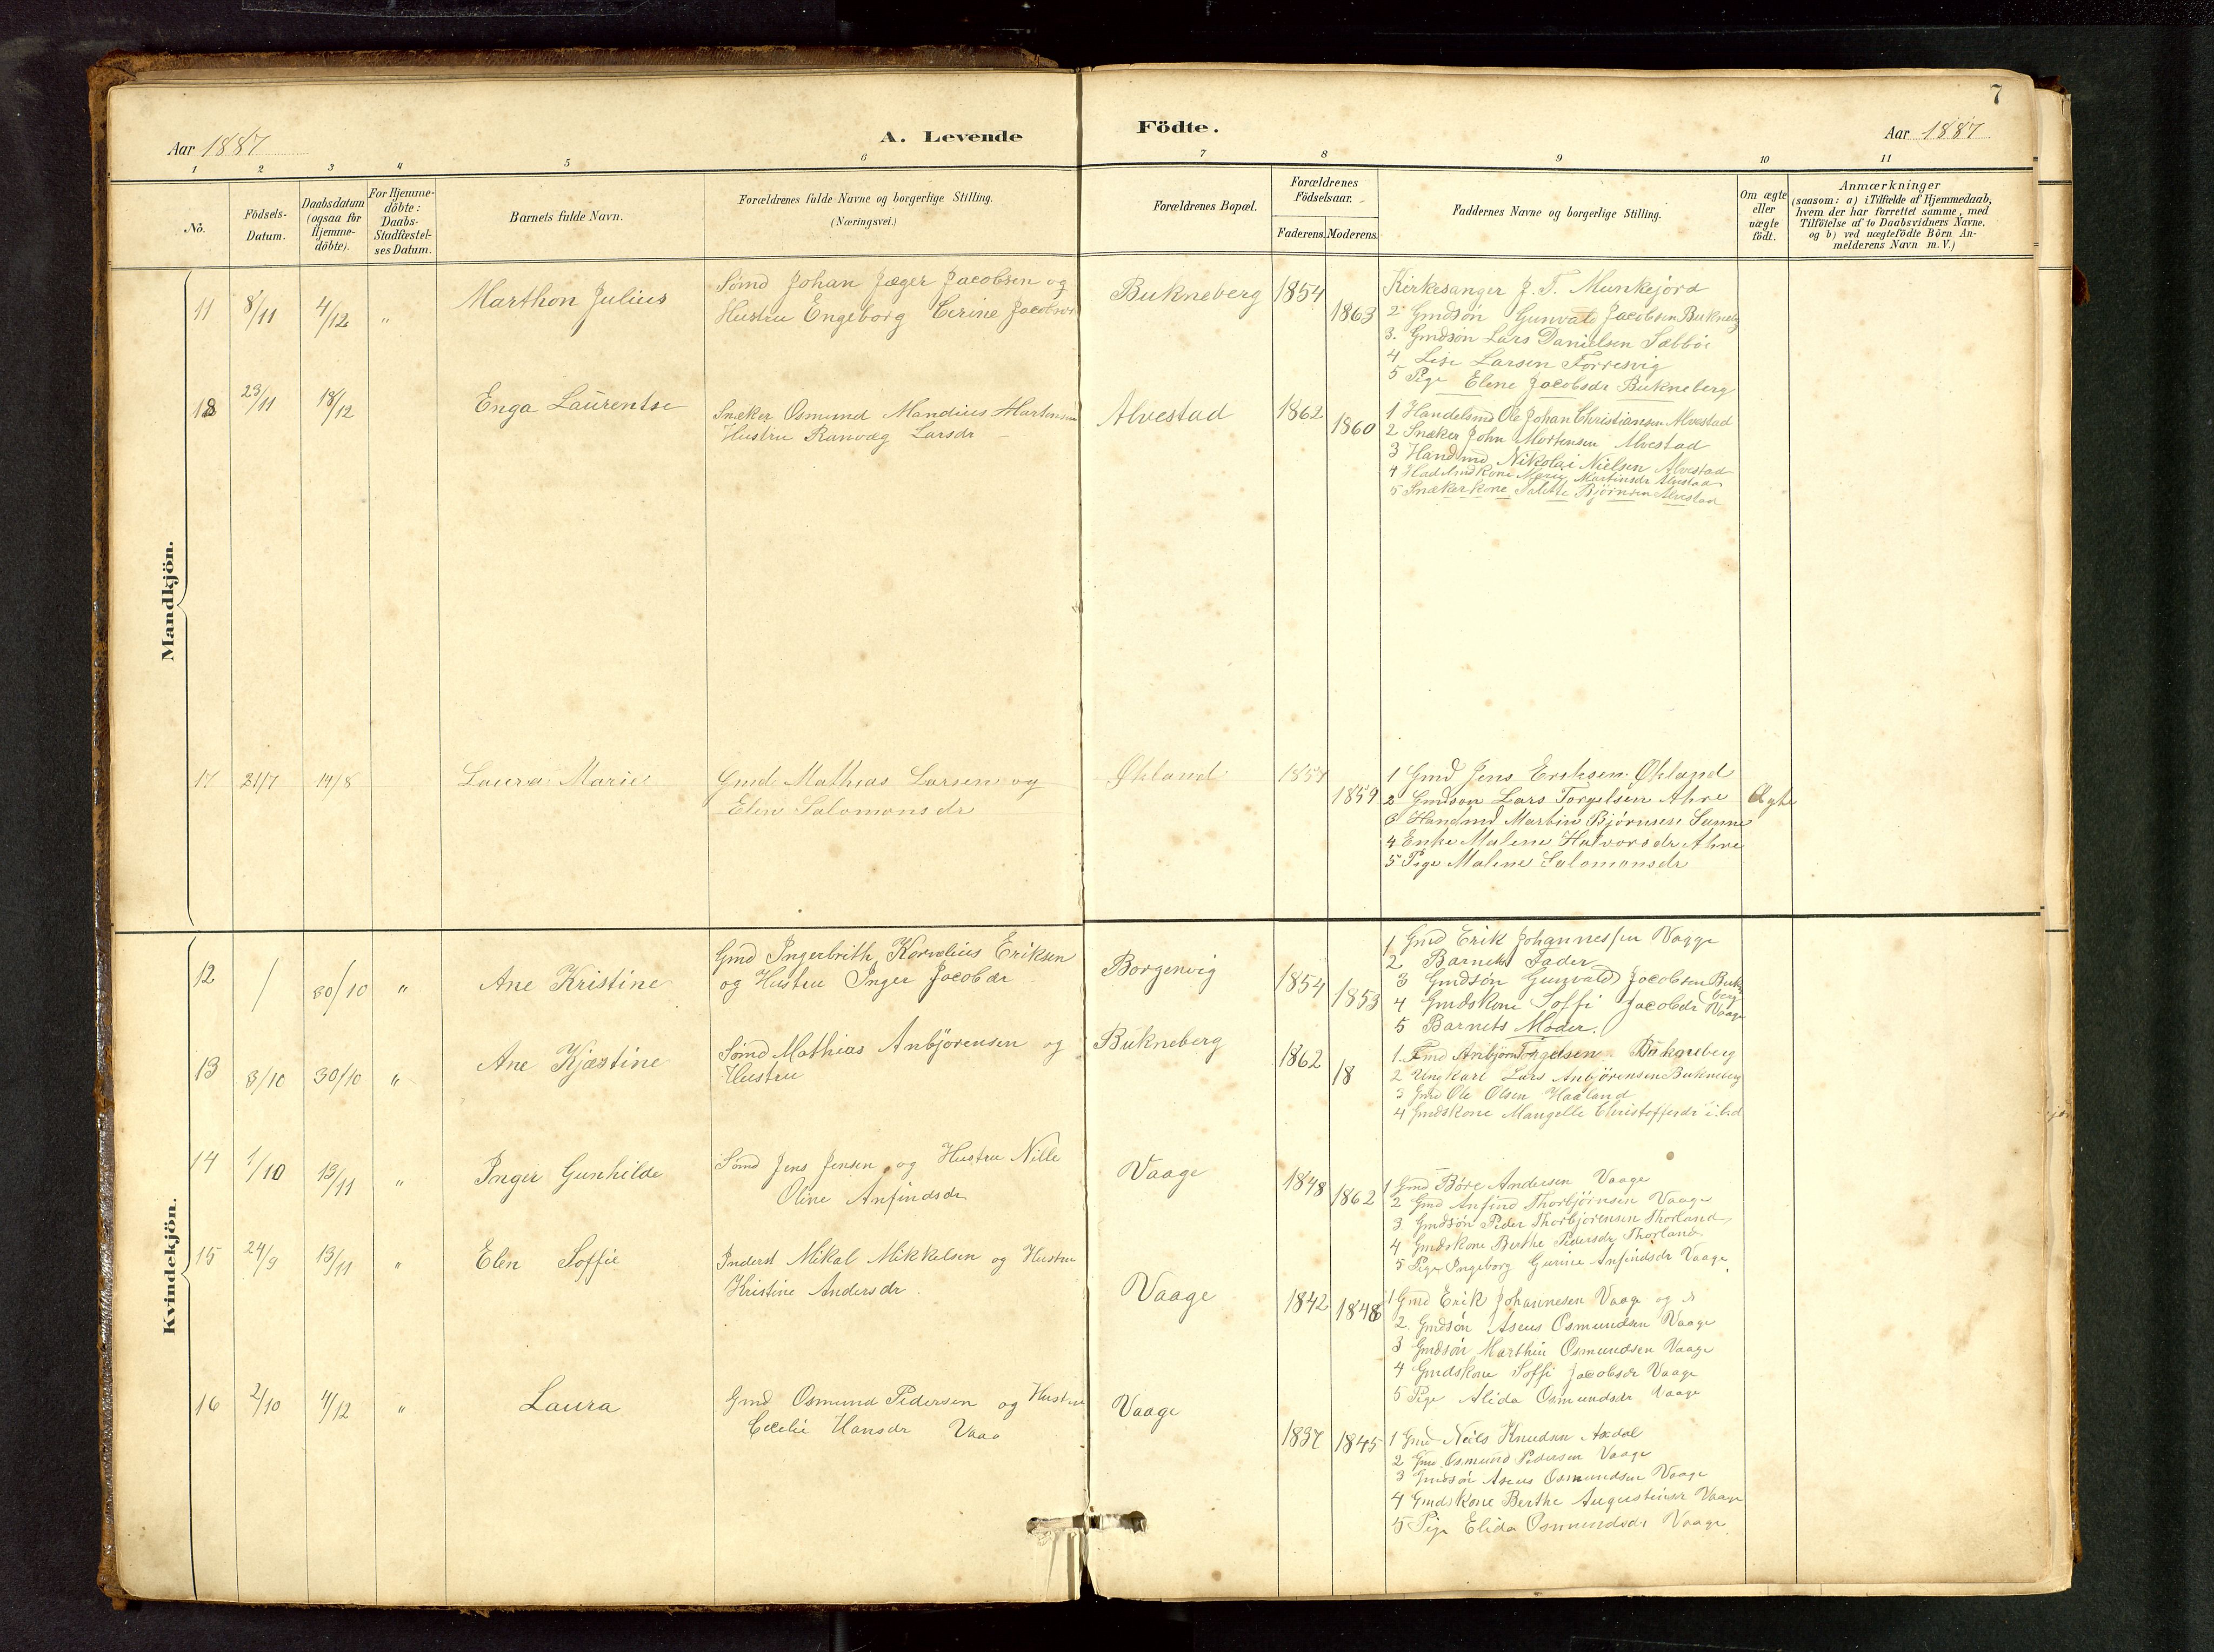 7
Aar 1887
A. Levende
Födte.
Aar 1887
1 2 3 4 5 6 7 8 9 10 11
Nó.
Födsels-Datum.
Daabsdatum (ogsaa for Hjemme-döbte).
For Hjemme-döbte: Daabs-Stadfæstel-ses Datum.
Barnets fulde Navn.
Forældrenes fulde Navne og borgerlige Stilling.
(Næringsvei.)
Forældrenes Bopæl.
Forældrenes Födselsaar.
Faderens. Moderens.
Faddernes Navne og borgerlige Stilling.
Om ægte eller uægte födt.
Anmærkninger
(saasom: a) i Tilfælde af Hjemmedaab,
hvem der har forrettet samme, med
Tilföielse af to Daabsvidners Navne,
og b) ved uægtefödte Börn An-
melderens Navn m. V.)
Mandkjön.
11 8/11 4/12 " Marthon Julius
Sømd Johan Jæger Jacobsen og
Hustru Engeborg Cerine Jacobsdr
Bukneberg 1854 1863
Kirkesanger J. T. Munkejord
2 Gmdsøn Gunvald Jacobsen Bukneb
3. Gmdsøn Lars Danielsen Sæbbøe
4 Lise Larsen Forresvig
5 Pige Elene Jacobsdr Bukneberg
12 23/11 18/12 Enga Laurentse
Snæker Osmund Mandius Martensen
Hustru Ranvæg Larsdr
Alvestad 1862 1860
1 Handelsmd Ole Johan Christiansen Alvestad
2 Snæker John Mortensen Alvestad
3 Handmd Nikolai Nielsen Alvestad
4 Hadlmdkone Marie Martinsdr Alvestad
5 Snækerkone Salitte Bjørnsen Alvestad
17 21/7 14/8 Laura Marie
Gmd Mathias Larsen og
Elen Salomonsdr
Økland 1857 1859
1 Gmd Jens Eriksen Økland
2 Gmdson Lars Torgelsen Ahre
3 Handmd Martin Bjørnsen Sunne
4 Enke Malene Halvorsdr Ahre
5 Pige Malene Salomonsdr
Ægte
Kvindekjön.
12 / 30/10 " Ane Kristine
Gmd Ingerbrith Kornelius Eriksen
og Hustru Inger Jacobdr
Borgenvig 1854 1853
1 Gmd Erik Johannessen Vaage
2 Barnets Fader
3 Gmdsøn Gunvald Jacobsen Bukneberg
4 Gmdskone Soffi Jacobdr Vaage
5 Barnets Moder.
13 3/10 30/10 " Ane Kjæstine
Sømd Mathias Anbjørensen og
Hustru
Bukneberg 1862 18
1. Fmd Anbjørn Torgelsen Bukneberg
2 Ungkarl Lars Anbjørensen Bukneberg
3 Gmd Ole Olsen Haaland
4 Gmdskone Mangelle Christoffersdr ibd
14 1/10 13/11 " Inger Gunhilde
Sømd Jens Jensen og Hustru Nille
Oline Anfindsdr
Vaage 1848 1862
1 Gmd Børe Andersen Vaage
2 Gmd Anfind Thorbjørnsen Vaage
3 Gmdsøn Peder Thorbjørensen Thorland
4 Gmdskone Berthe Pedersdr Thorland
5 Pige Ingeborg Gurine Anfindsdr Vaage
15 24/9 13/11 " Elen Soffie
Inderst Mikal Mikkelsen og Hustru
Kristine Andersdr.
Vaage 1842 1848
1 Gmd Erik Johannesen Vaage og
2. Gmdsøn Aseus Osmundsen Vaage
3 Gmdsøn Marthin Osmundsen Vaage
4 Gmdskone Soffi Jacobsdr Vaage
5 Pige Alida Osmundsdr Vaage
16 2/10 4/12 " Laura
Gmd Osmund Pedersen og Hustru
Cecelie Hansdr Vaag
Vaage 1837 1845
1 Gmd Neils Knudsen Axdal
2 Gmd Osmund Pedersen Vaage
3 Gmdsøn Aseus Osmundsen Vaage
4 Gmdskone Berthe Augustinusdr Vaage
5 Pige Elida Osmundsdr Vaage